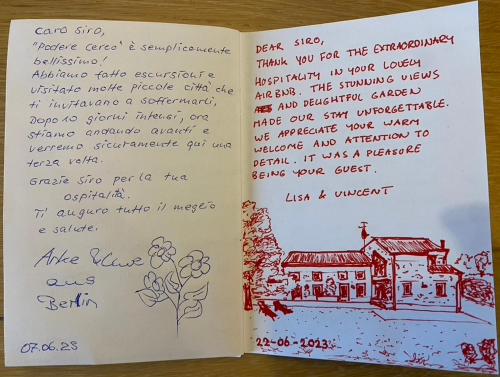 Caro Siro,
"Podere Cerco" è semplicemente
bellissimo!
Abbiamo fatto escursioni e
visitato molte piccole città che
ti invitavano a soffermarti,
Dopo 10 giorni intensi, ora
stiamo andando avanti e
verremo sicuramente qui una
terza volta.
Grazie Siro per la tua
ospitalità.
Ti auguro tutto il meglio
e salute.
aus
Berlin
07.06.23
DEAR SIRO,
THANK YOU FOR THE EXTRAORDINARY
HOSPITALITY IN YOUR LOVELY
AIRBNB. THE STUNNING VIEWS
AND DELIGHTFUL GARDEN
MADE OUR STAY UNFORGETTABLE.
WE APPRECIATE YOUR WARM
WELCOME AND ATTENTION TO
DETAIL. IT WAS A PLEASURE
BEING YOUR GUEST.
LISA & VINCENT
22-06-2023